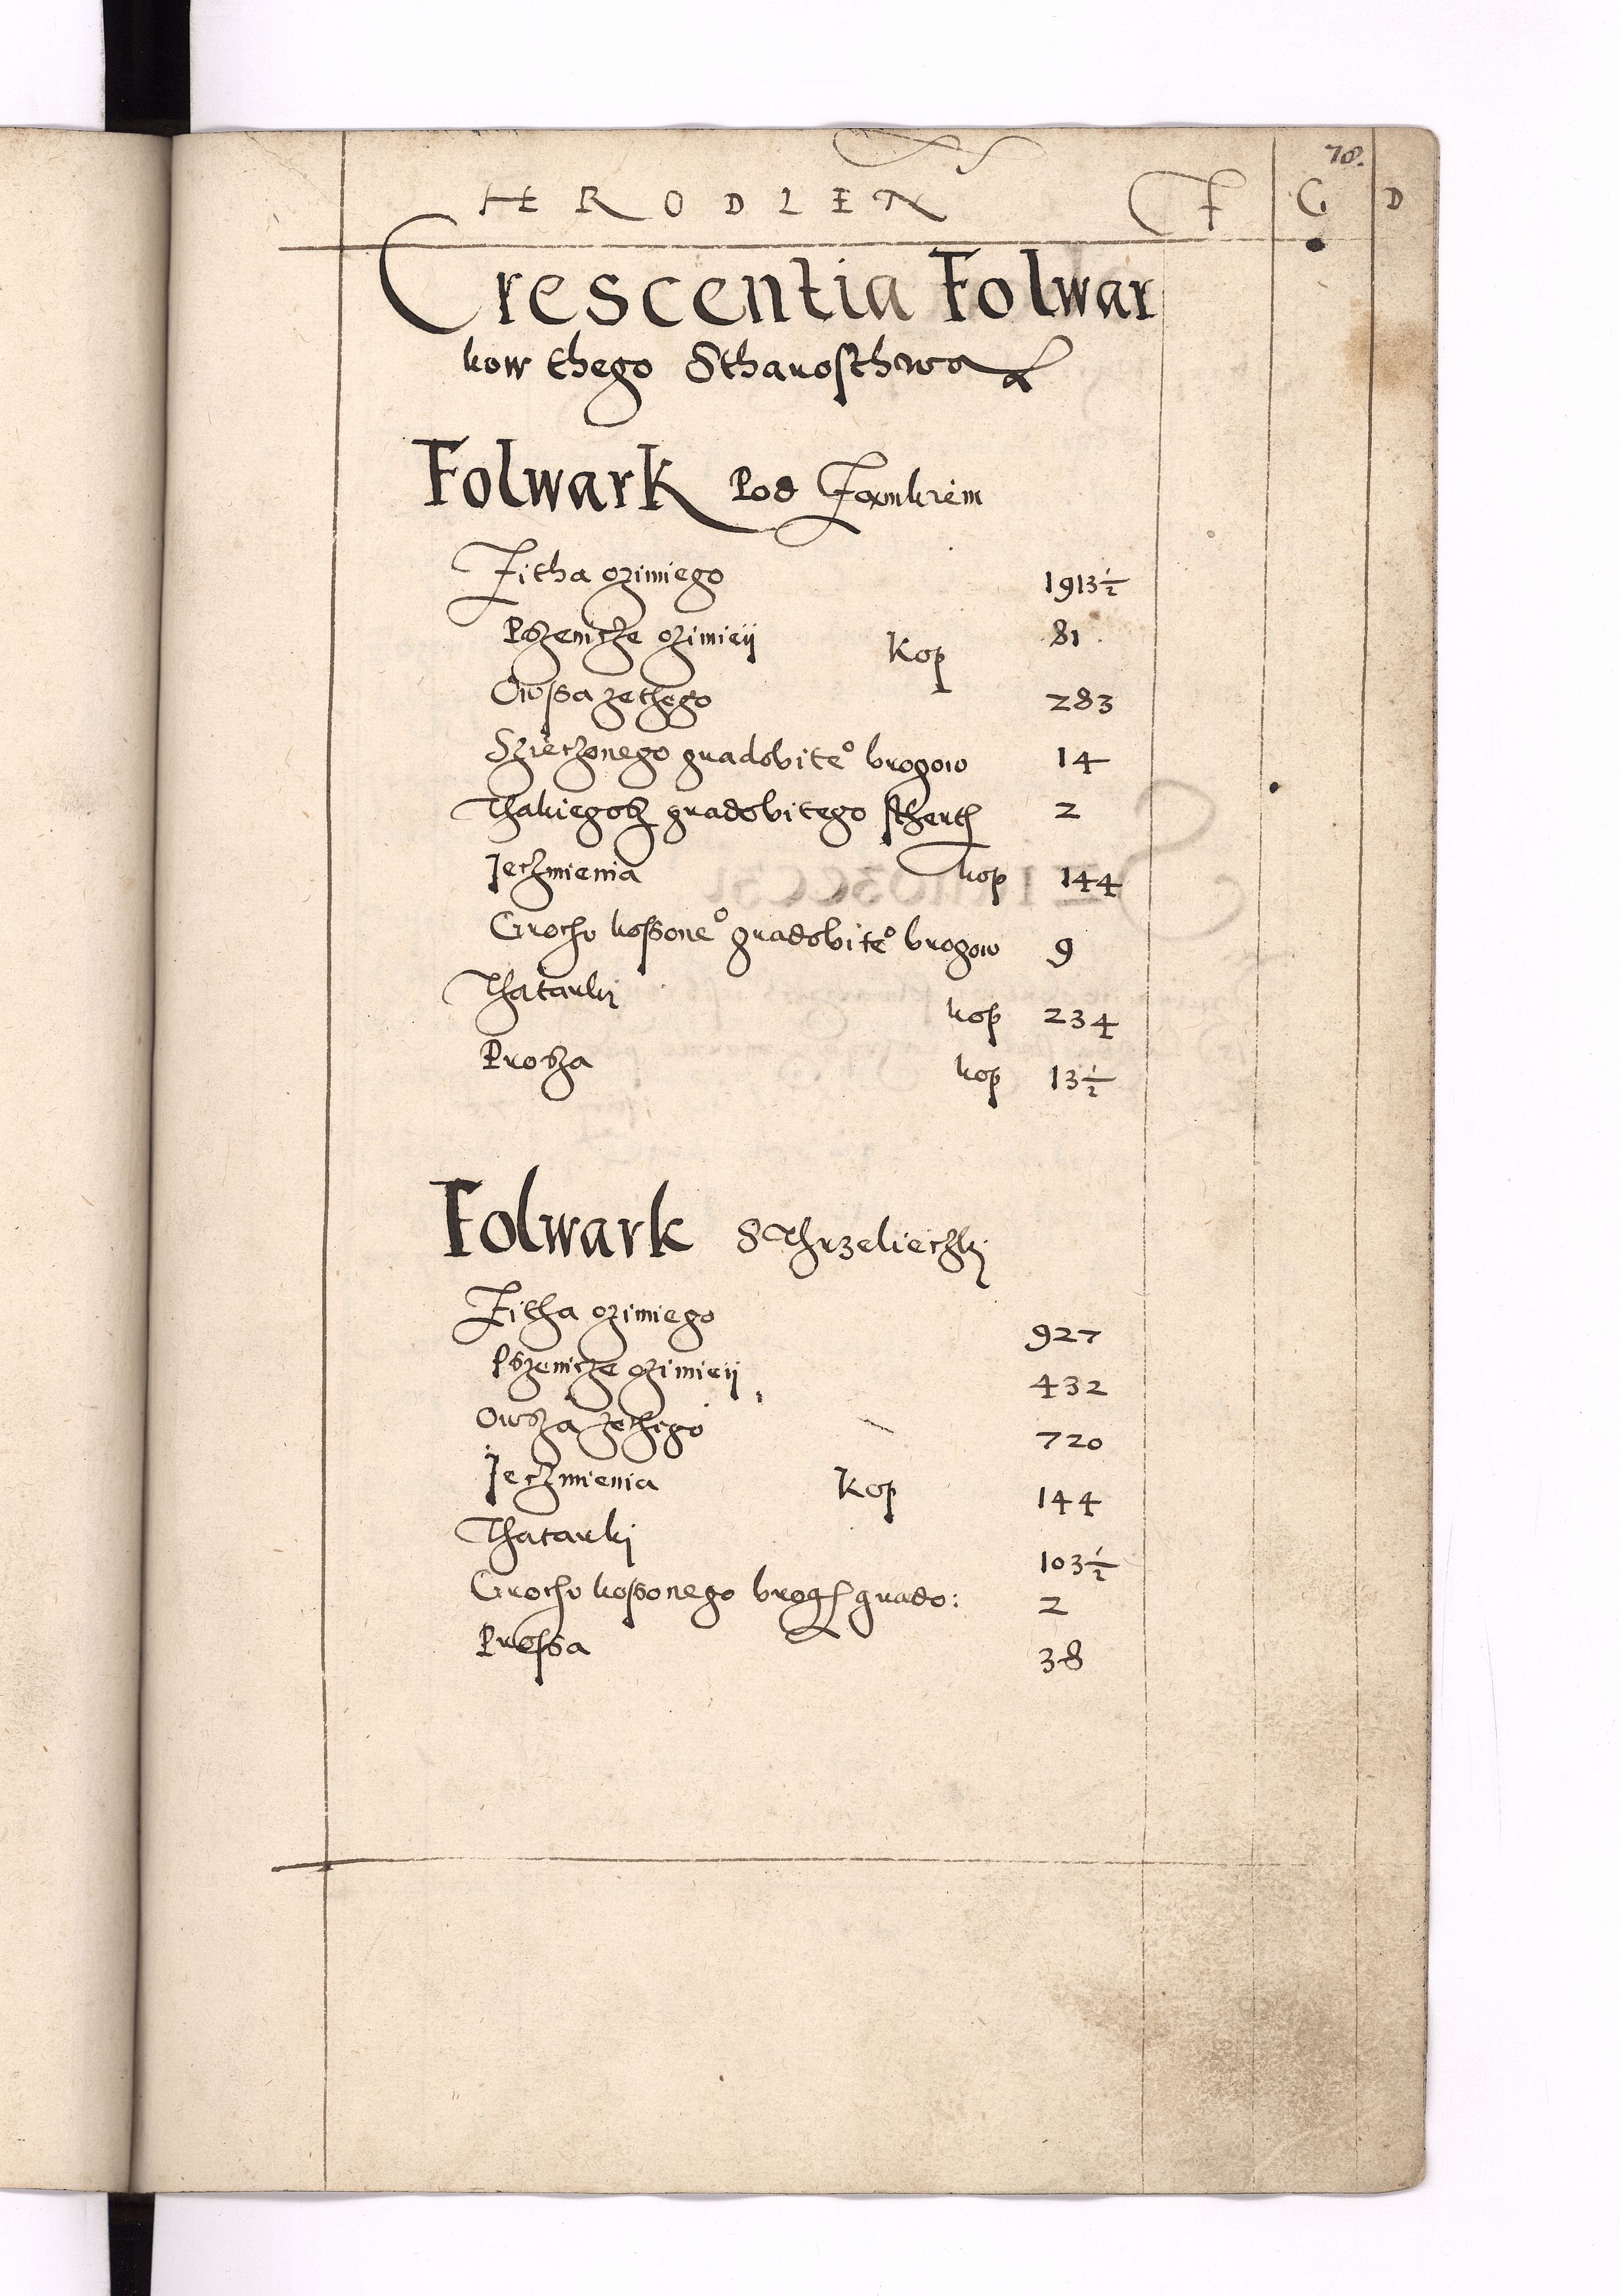 78.
HRODLEN F G D
Crescentia Folwar
kow thego Stharosthwa
Folwark Pod Zamkiem
Zitha ozimiego 1913½
Pszenicze ozimieÿ Kop 81
Owssa zethego 283
Szieczonego gradobite° brogow 14
Thakiegosz gradobitego stherth 2
Jeczmienia kop 144
Grochu kossone° gradobite° brogow 9
Thatarki kop 234
Prosza kop 13½
Folwark Sthrzelieczki
Zitha ozimiego 927
Pszenicze ozimieÿ 432
Owsza zethego 720
Jeczmienia Kop 144
Thatarki 103½
Grochu kossonego grado: 2
Prossa 38